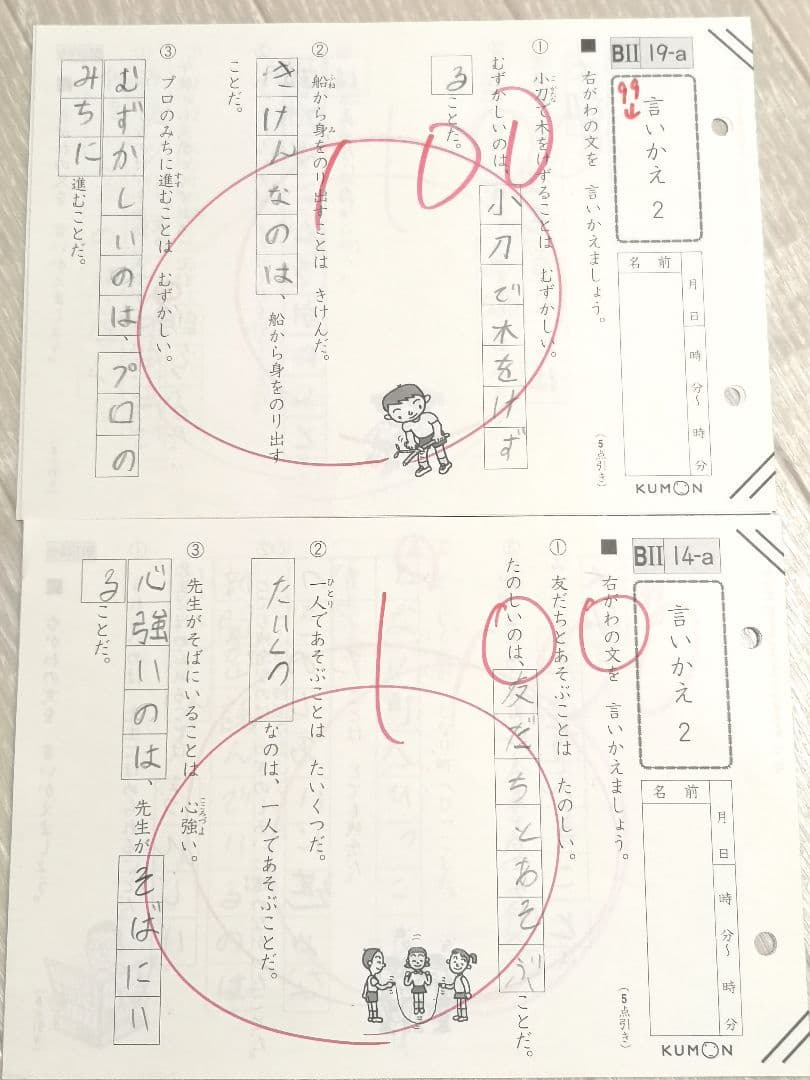 BⅡ 19-a
言いかえ 2
99
名前
月 日 時 分〜 時 分
KUMON
■ 右がわの文を 言いかえましょう。
(5点引き)
① 小刀で木をけずることは むずかしい。
こがたな
むずかしいのは、小刀で木をけず
ることだ。
100
② 船から身をのり出すことは きけんだ。
ふね み
きけんなのは、船から身をのり出す
ことだ。
③ プロのみちに進むことは むずかしい。
すす
むずかしいのは、プロの
みちに進むことだ。
BⅡ 14-a
言いかえ 2
名前
月 日 時 分〜 時 分
KUMON
■ 右がわの文を 言いかえましょう。
(5点引き)
① 友だちとあそぶことは たのしい。
たのしいのは、友だちとあそぶことだ。
100
② 一人であそぶことは たいくつだ。
ひとり
たいくつなのは、一人であそぶことだ。
③ 先生がそばにいることは 心強い。
こころづよ
心強いのは、先生がそばにい
ることだ。